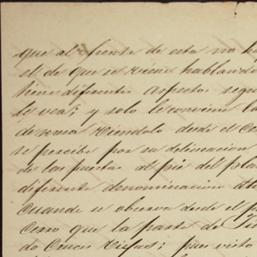 que al frente de esta no h
el de que se viene hablando
tiene diferentes aspectos segun
le vea; y solo le conviene la
desde el Co
se percibe por su delineacion
de las puntas al pié del pla
diferente denominacion
Cuando se observa desde el p
Como que la parte de
do Cruces Viejas; pues visto